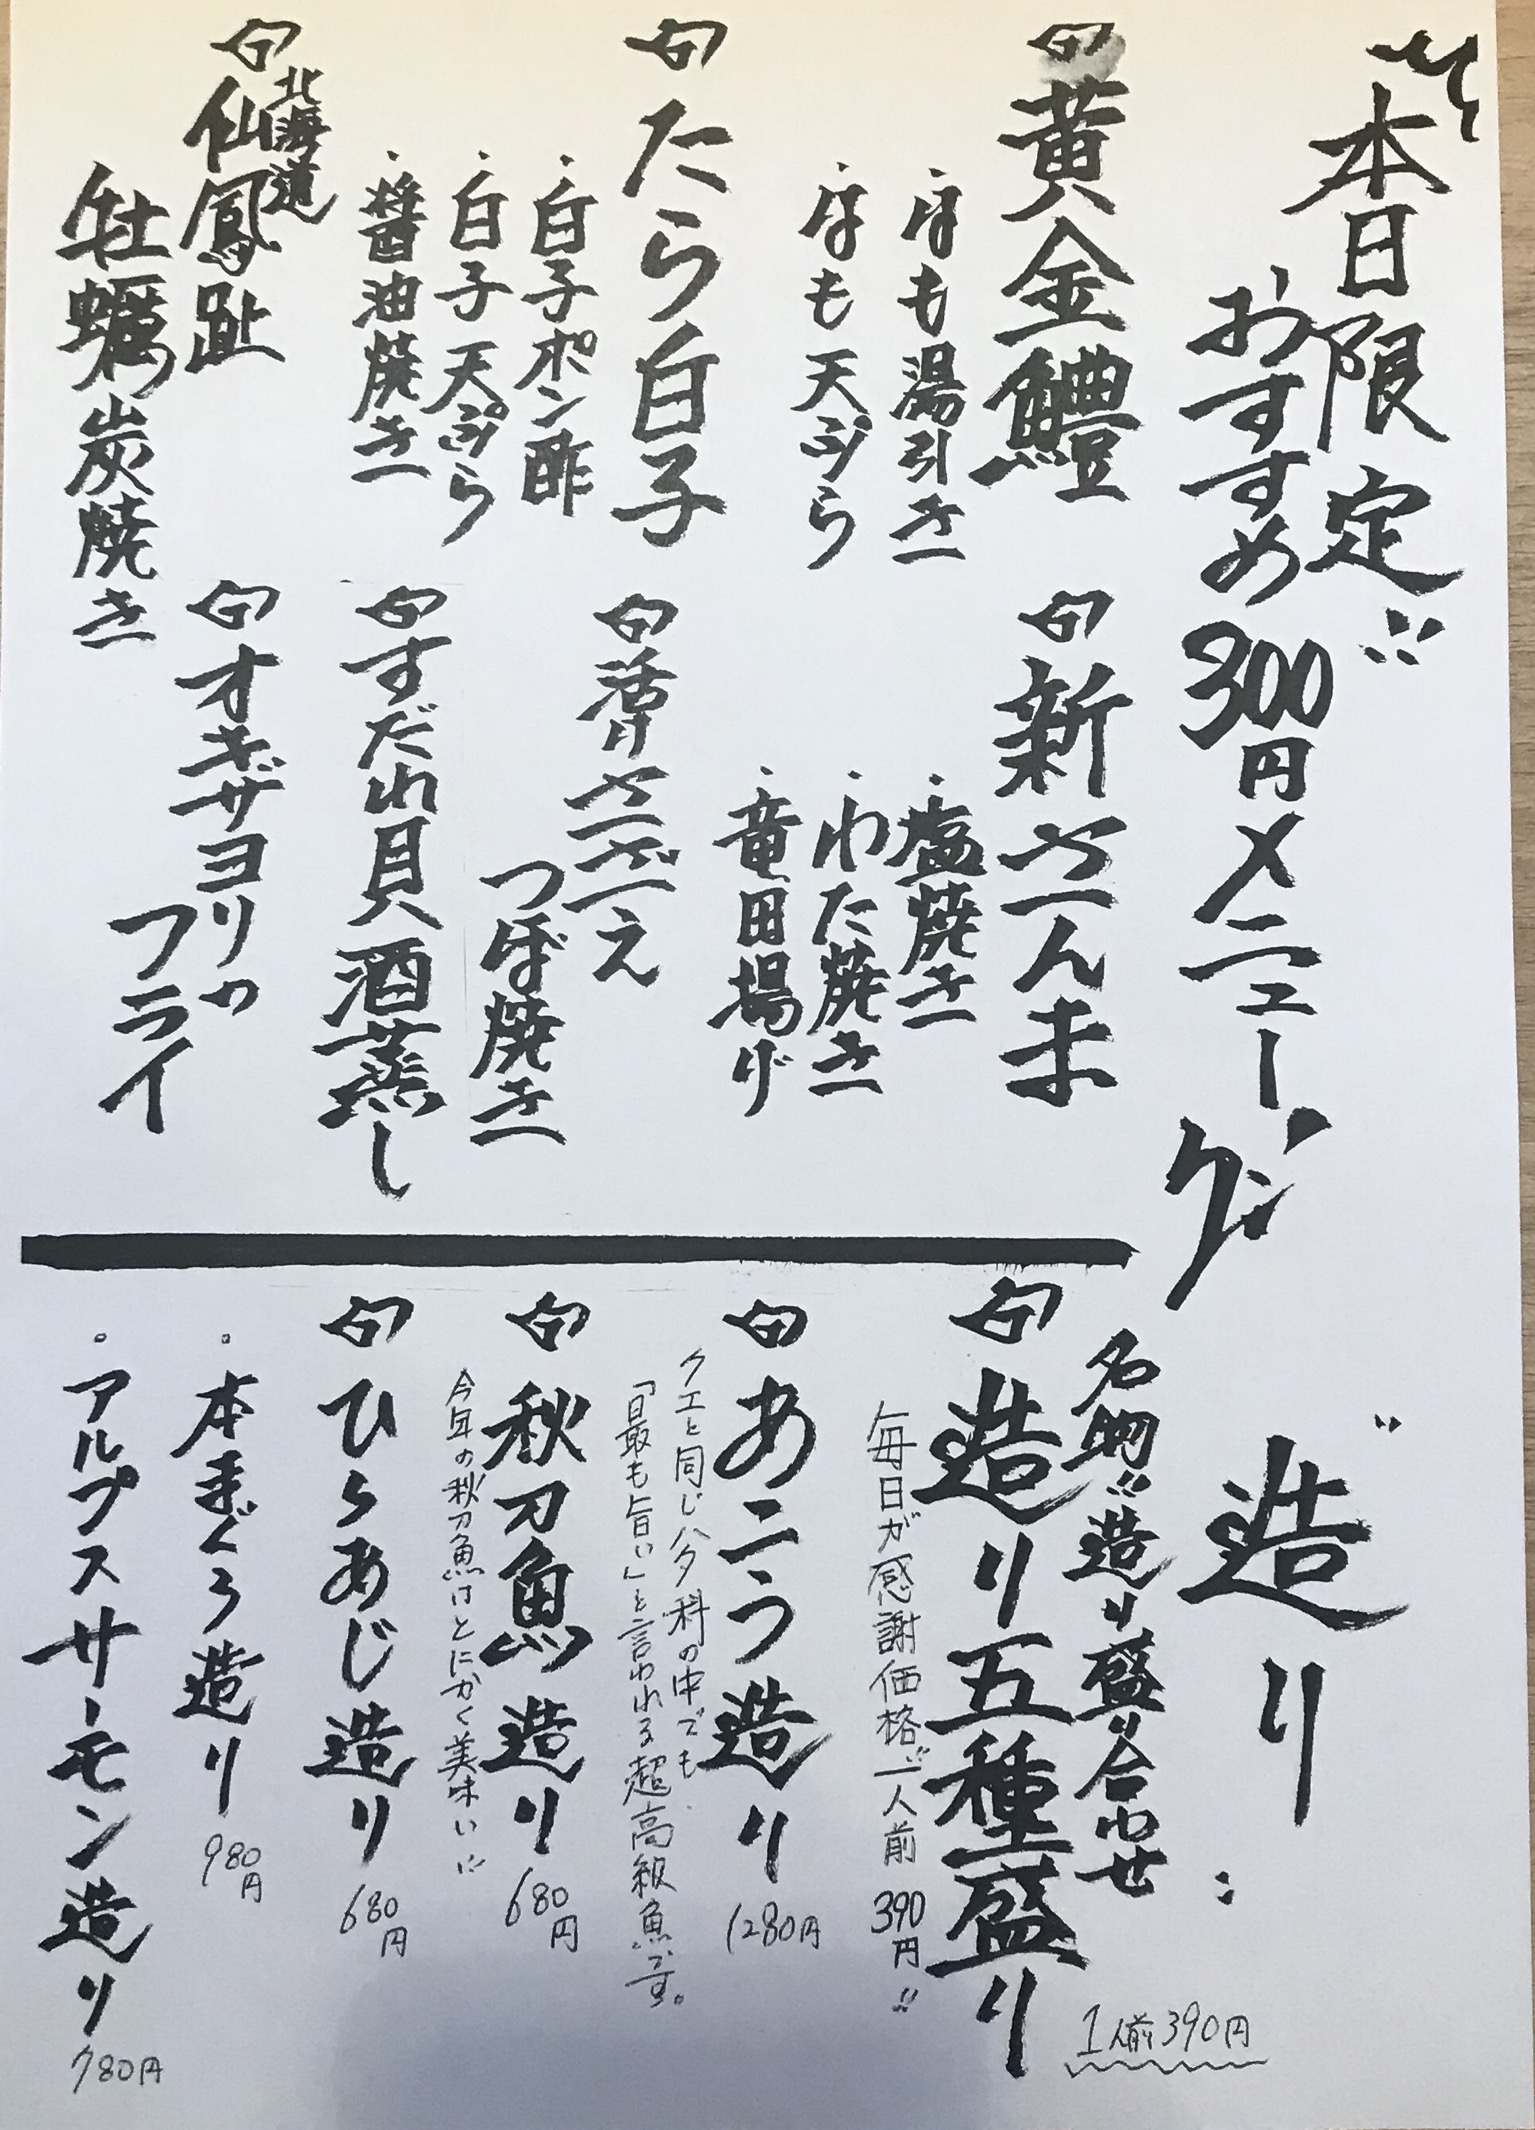 本日限定!!
おすすめ300円メニュー
黄金鱧
・はも湯引き
・はも天ぷら
たら白子
・白子ポン酢
・白子天ぷら
・醤油焼き
北海道
仙鳳趾
牡蠣炭焼き
新さんま
・塩焼き
・わた焼き
・竜田揚げ
活けさざえ
つぼ焼き
すだれ貝酒蒸し
オキザヨリの
フライ
造り
名物!!造り盛り合わせ
1人前390円
造り五種盛り
毎日が感謝価格!!一人前390円!!
あこう造り 1280円
クエと同じハタ科の中でも、
「最も旨い」と言われる超高級魚です。
秋刀魚造り 680円
今年の秋刀魚はとにかく美味い!!
ひらあじ造り 680円
・本まぐろ造り 980円
・アルプスサーモン造り 780円